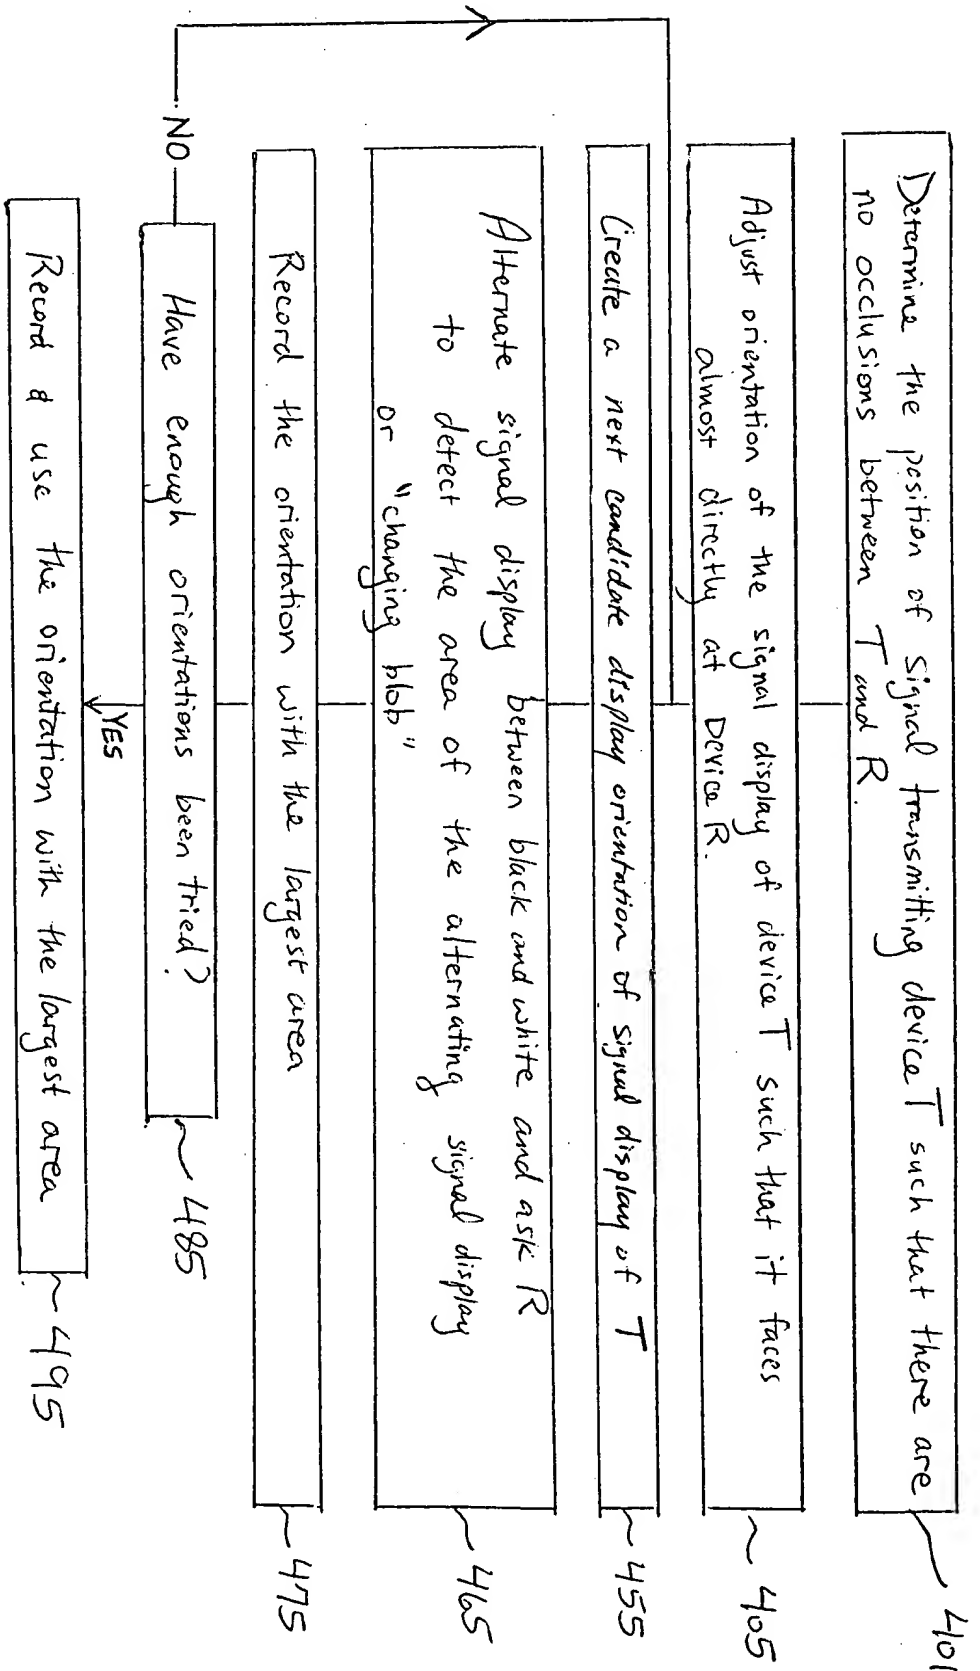 Determine the position of signal transmitting device T such that there are
no occlusions between T and R.
401
Adjust orientation of the signal display of device T such that it faces
almost directly at Device R.
405
Create a next candidate display orientation of signal display of T
455
Alternate signal display between black and white and ask R
to detect the area of the alternating signal display
or "changing blob"
465
Record the orientation with the largest area
475
Have enough orientations been tried?
485
NO
YES
Record & use the orientation with the largest area
495